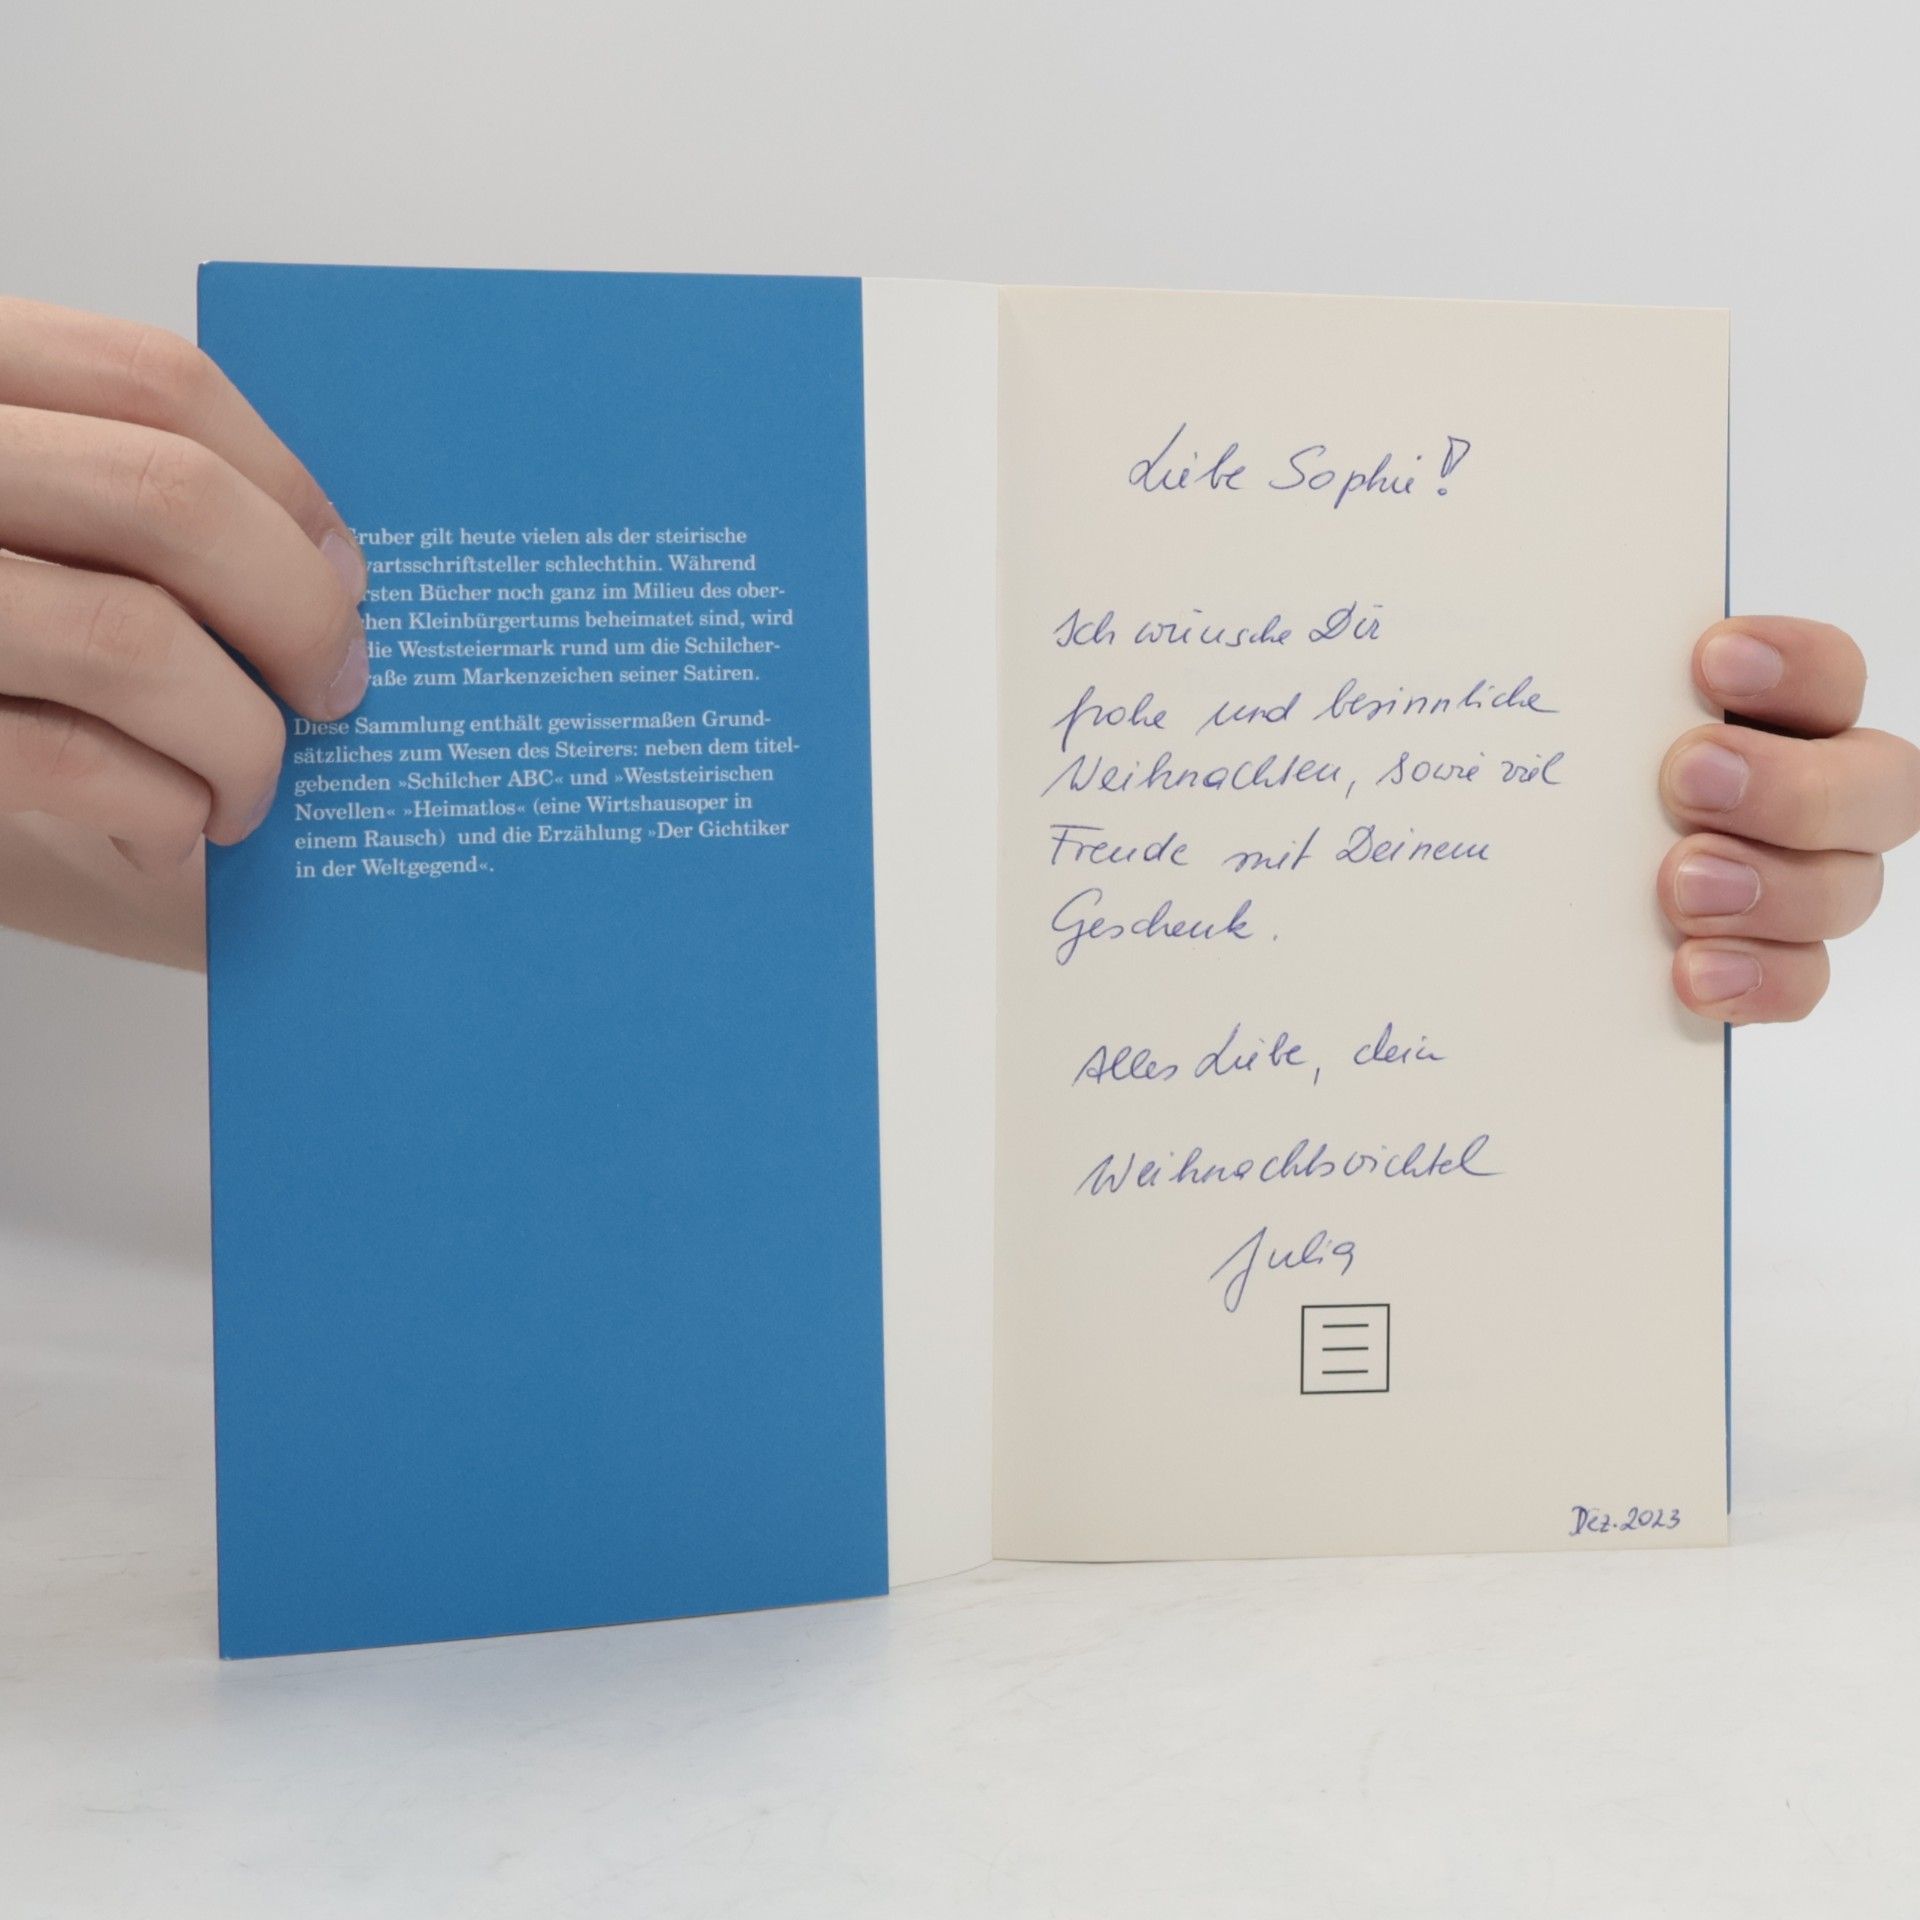 Gruber gilt heute vielen als der steirische
schriftsteller schlechthin. Während
Bücher noch ganz im Milieu des ober-
Kleinbürgertums beheimatet sind, wird
die Weststeiermark rund um die Schilcher-
zum Markenzeichen seiner Satiren.
Diese Sammlung enthält gewissermaßen Grund-
sätzliches zum Wesen des Steirers: neben dem titel-
gebenden »Schilcher ABC« und »Weststeirischen
Novellen« »Heimatlos« (eine Wirtshausoper in
einem Rausch) und die Erzählung »Der Gichtiker
in der Weltgegend«.
Liebe Sophie!
Ich wünsche Dir
frohe und besinnliche
Weihnachten, sowie viel
Freude mit Deinem
Geschenk.
Alles Liebe, dein
Weihnachtswichtel
Julia
Dez. 2023